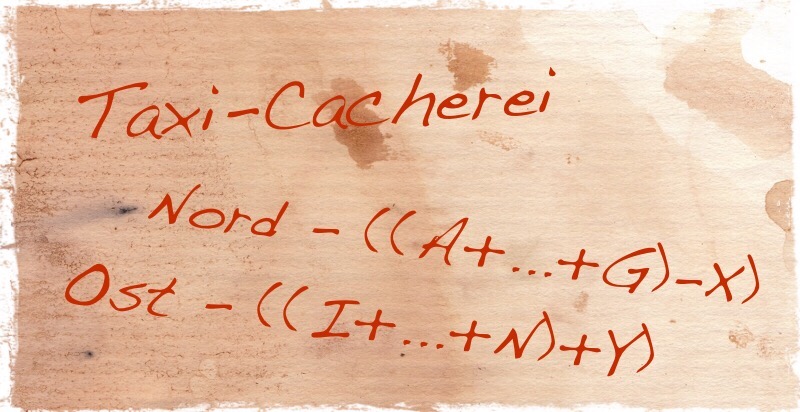 Taxi-Cacherei
Nord - ((A+...+G)-X)
Ost - ((I+...+N)+Y)